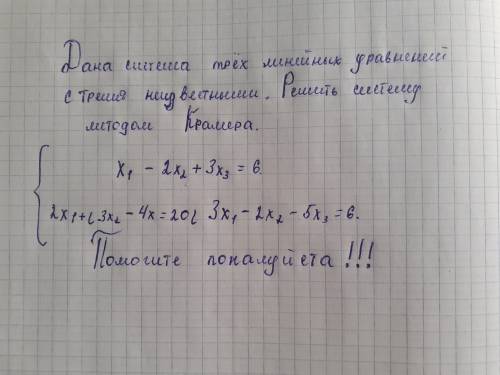 Дана система трёх линейных уравнений
с тремя неизвестными. Решить систему
методом Крамера.
x₁ - 2x₂ + 3x₃ = 6.
2x₁ + ( 3x₂ - 4x = 20( 3x₁ - 2x₂ - 5x₃ = 6.
Помогите попалуйста !!!